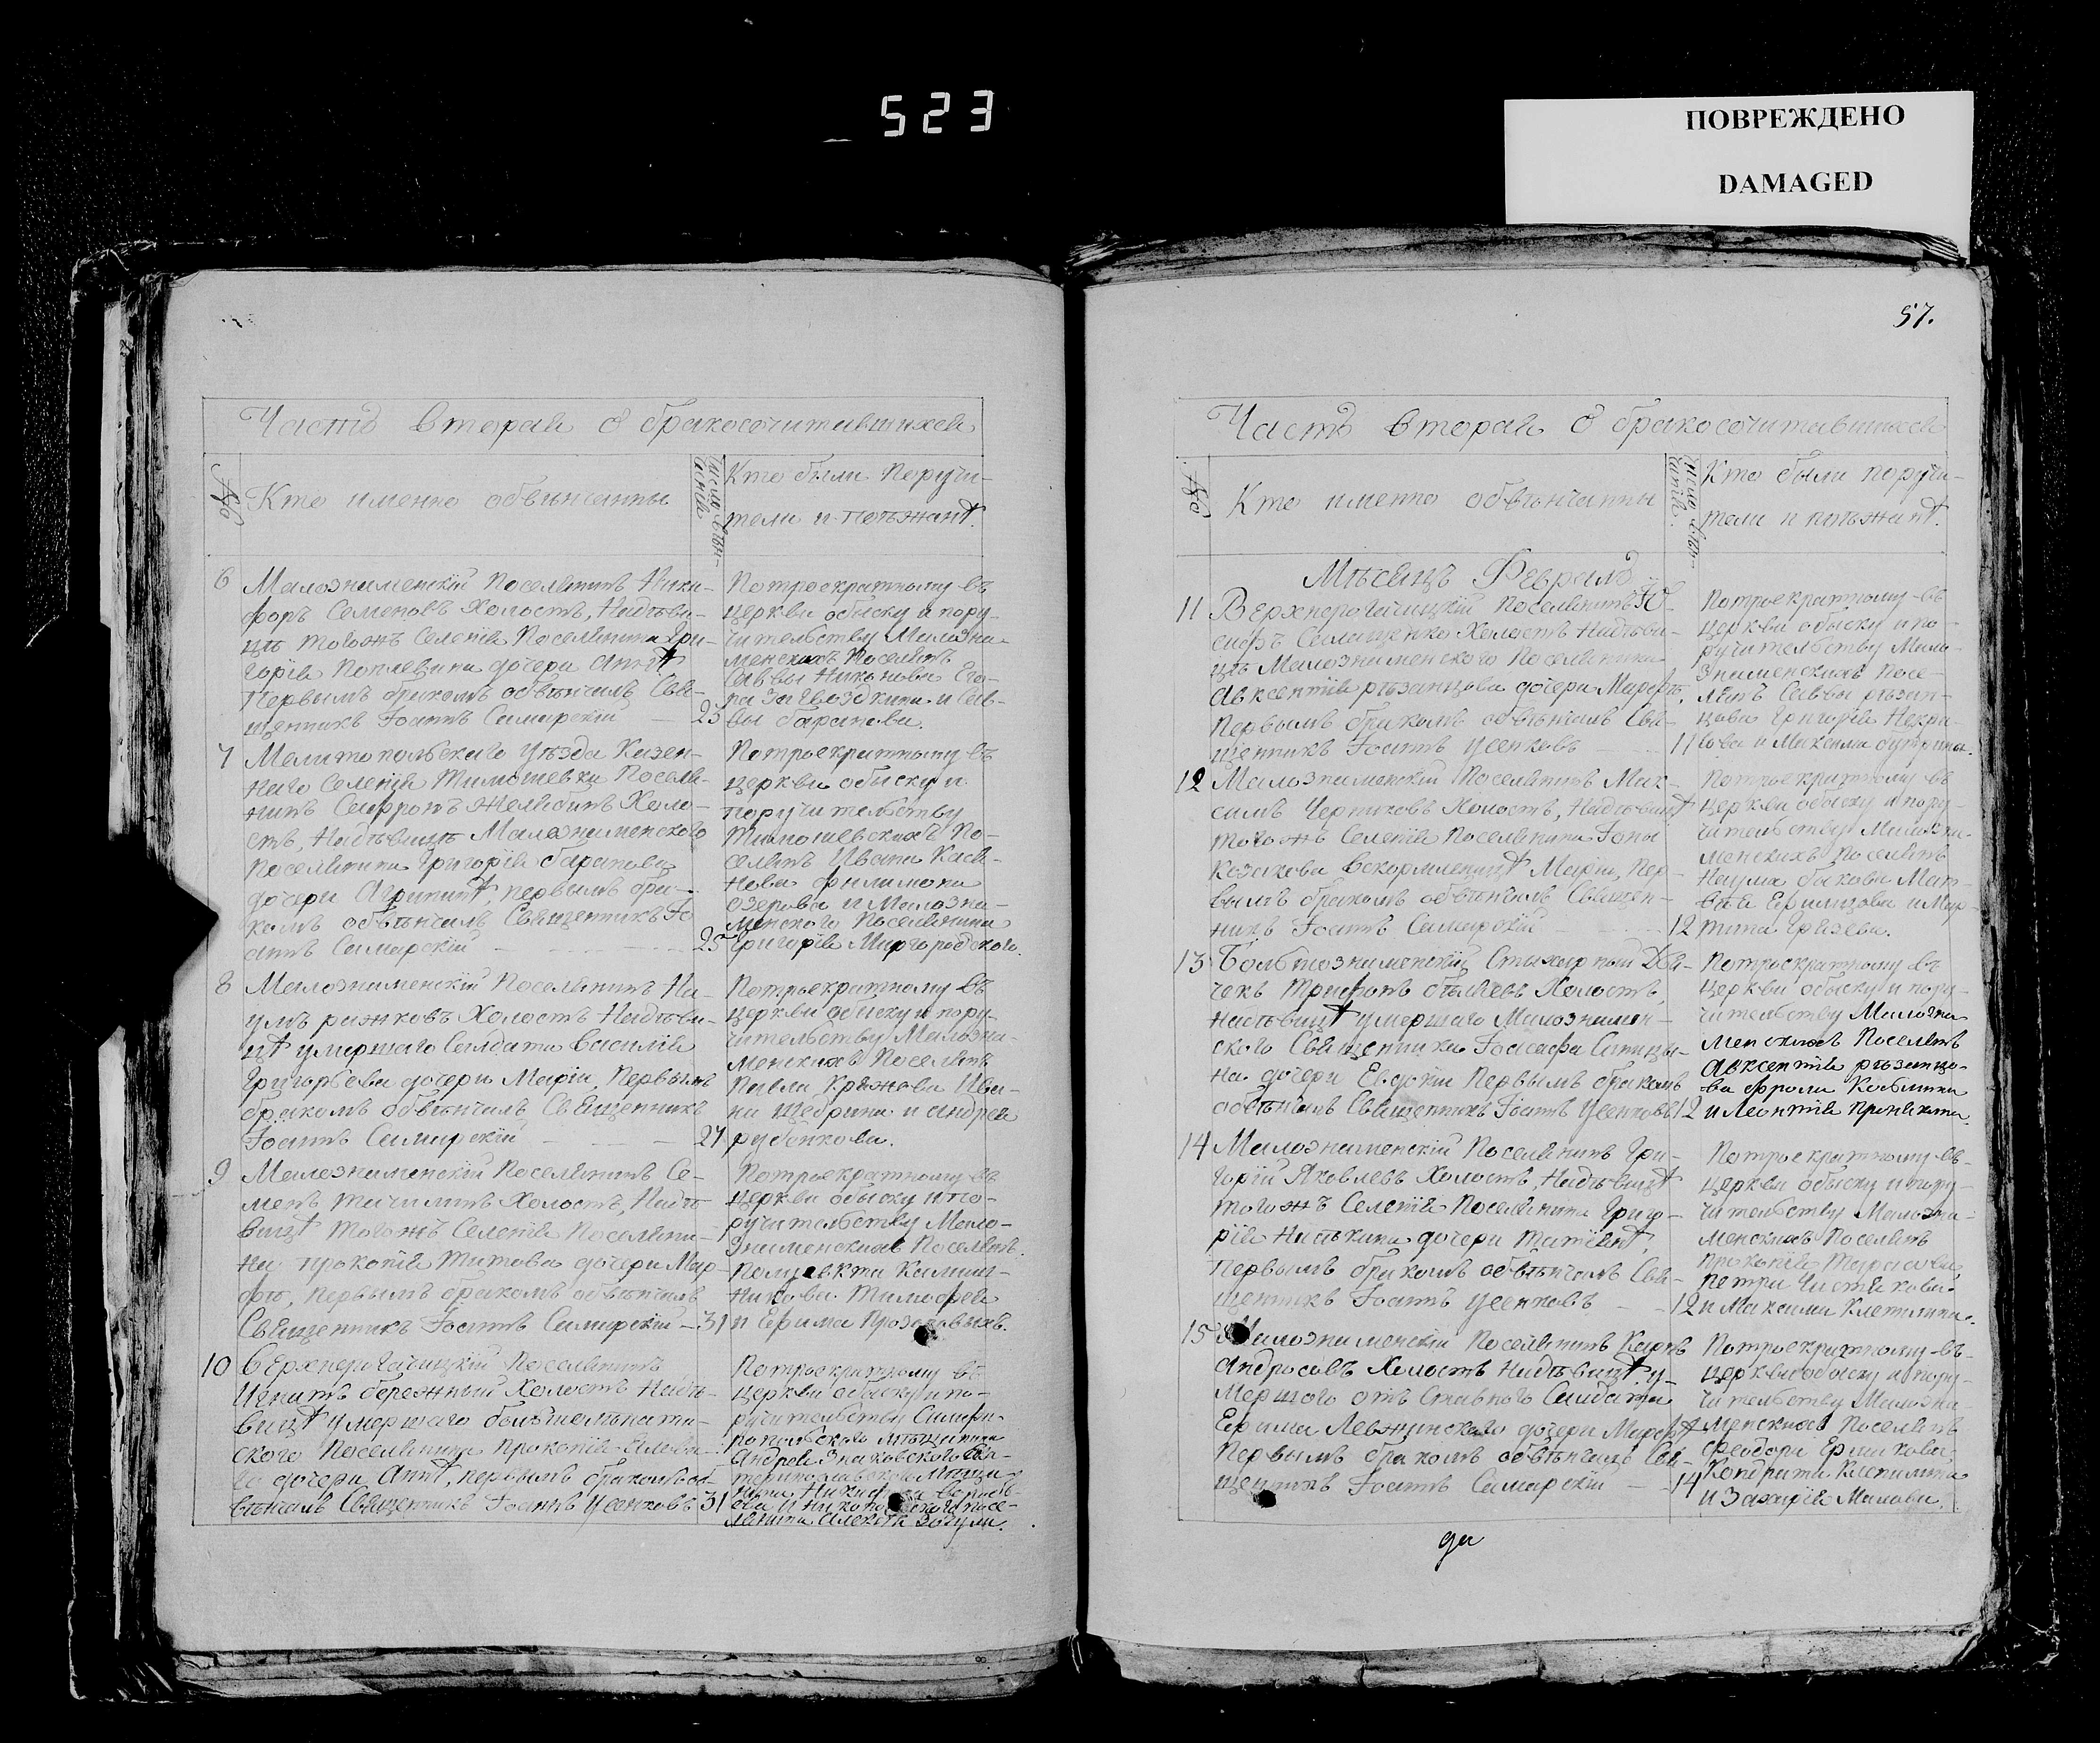 523
ПОВРЕЖДЕНО
DAMAGED
Часть вторая о бракосочитавшихся
№
Кто именно обвѣнчанны
число вѣн-
чанія
Кто были Поручи-
тели и поѣжанѣ.
6 Малознаменскій Поселянинъ Ники-
форъ Семеновъ Холостъ, Надѣви-
цѣ тогожъ Селенія Поселянина Гри-
горія дочери Аннѣ
Первымъ бракомъ обвѣнчалъ Свя-
щенникъ Іоаннъ Самарскій — 23
Потроекратному въ
церкви обыску и пору-
чительству Малозна-
менскихъ Поселянъ
Саввы Никонова Его-
ра Загвоздкина и Сав-
вы баранова.
7 Мелитопольскаго уѣзда Казен-
наго Селенія Тимошевки Поселя-
нинъ Сафронъ Желябинъ Холо-
стъ, Надѣвицѣ Малознаменского
поселянина Григорія баранова
дочери Агрипинѣ, первымъ бра-
комъ обвѣнчалъ Священникъ Іо
аннъ Самарскій — 25
Потроекратному въ
церкви обыску и
поручительству
Тимошевскихъ По-
селянъ Ивана Каси-
нова филимона
озерова и Малозна-
менского Поселянина
Григорія Миргородского.
8 Малознаменскій Поселянинъ На-
умъ рижковъ Холостъ Надѣви-
цѣ умершаго Салдата василія
Григорьева дочери Маріи, Первымъ
бракомъ обвѣнчалъ Священникъ
Іоаннъ Самарскій — 27
Потроекратному въ
церкви обыску и пору-
чительству Малозна-
менскихъ Поселянъ
Павла Кряжова Ива-
на Щедрина и андрея
рубонкова.
9 Малознаменскій Поселянинъ Се-
менъ тачилинъ Холостъ, Надѣ
вицѣ тогожъ Селенія Поселяни-
на прокопія титова дочери Мар-
фѣ, первымъ бракомъ обвѣнчалъ
Священникъ Іоаннъ Самарскій — 31
Потроекратному въ
церкви обыску и по-
ручительству Мало-
знаменскихъ Поселянъ.
Полуекта Калаш-
никова Тимофея
и Ефима Прозоровыхъ.
10 Верхнерогачицкій Поселянинъ
Игнатъ бережный Холостъ Надѣ-
вицѣ умершаго
ского Поселянина Прокопія
дочери Аннѣ, первымъ бракомъ об-
вѣнчалъ Священникъ Іоаннъ Усенковъ 31
Потроекратному въ
церкви обыску и по-
ручительству Симфи-
ропольского мѣщанина
андрея Знаковского Ека-
теринославского мѣща-
нина
ева и никопольского посе-
лянина алексѣя
57.
Часть вторая о бракосочитавшихся
№
Кто именно обвѣнчанны
число вѣн-
чанія.
Кто были поручи-
тели и поѣжанѣ.
Мѣсяцъ Февраль
11 Верхнерогачицкій Поселянинъ Ю-
сифъ Салащенко Холостъ Надѣви-
цѣ Малознаменского Поселянина
авксентія рѣзанцова дочери Марфѣ,
Первымъ бракомъ обвѣнчалъ Свя-
щенникъ Іоаннъ Усенковъ — 11
Потроекратному въ
церкви обыску и по-
ручительству Мало-
знаменскихъ Посе-
лянъ Саввы рѣзан-
цова Григорія Некра-
сова и Максима бутрина.
12 Малознаменскій Поселянинъ Мак-
симъ Чертковъ Холостъ, Надѣвицѣ
тогожъ Селенія Поселянина Іоны
Казакова вскормленницѣ Маріи, Пер-
вымъ бракомъ обвѣнчалъ Священ-
никъ Іоаннъ Самарскій — 12
Потроекратному въ
церкви обыску и пору-
чительству Малозна-
менскихъ Поселянъ
Наума быкова Мат-
вея Ермилова и Мар-
тина Грязева.
13 Большознаменскій Стихарный Дья-
чекъ Трифонъ Холостъ,
надѣвицѣ умершаго Малознамен-
ского Священника Іоасафа Синицы-
на дочери Евдокіи Первымъ бракомъ
обвѣнчалъ Священникъ Іоаннъ Усенковъ 12
Потроекратному въ
церкви обыску и пору-
чительству Малозна
менскихъ Поселянъ
авксентія рѣзанцо-
ва фрола Коблина
и Леонтія
14 Малознаменскій Поселянинъ Гри-
горій Яковлевъ Холостъ, Надѣвицѣ
тогожъ Селенія Поселянина Григо-
рія дочери татіянѣ,
Первымъ бракомъ обвѣнчалъ Свя-
щенникъ Іоаннъ Усенковъ — 12
Потроекратному въ
церкви обыску и пору-
чительству Малозна-
менскихъ Поселянъ
прокопія Тарасова,
петра Чистякова
и Максима Клепинина.
15 Малознаменскій Поселянинъ Карпъ
андросовъ Холостъ Надѣвицѣ у-
мершого отъ ставного Салдата
Ефима Левжинского дочери Марфѣ
Первымъ бракомъ обвѣнчалъ Свя-
щенникъ Іоаннъ Самарскій — 14
Потроекратному въ
церкви обыску и пору-
чительству Малозна-
менскихъ Поселянъ
феодора Ермакова
Кондрата Клепинина
и Захарія Малова.
да